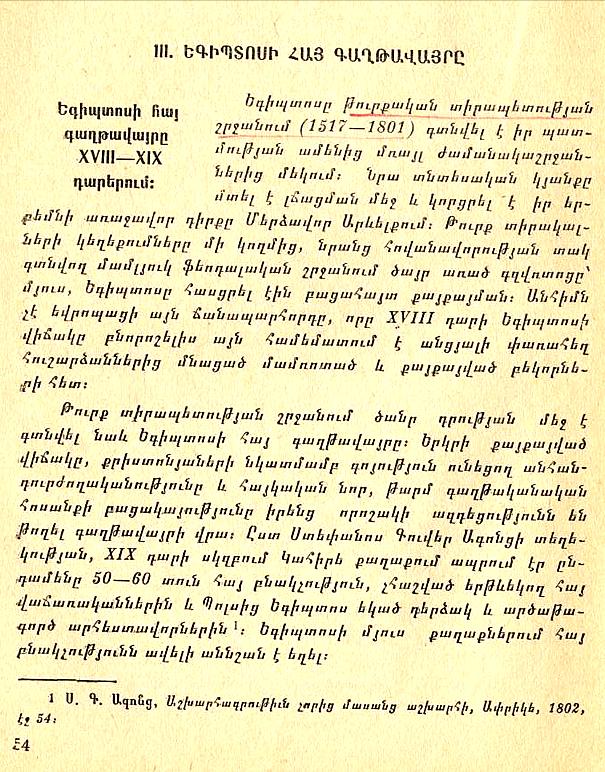 III. ԵԳԻՊՏՈՍԻ ՀԱՅ ԳԱՂԹԱՎԱՅՐԸ
Եգիպտոսի հայ
գաղթավայրը
XVIII—XIX
դարերում։
Եգիպտոսը թուրքական տիրապետության
շրջանում (1517—1801) գտնվել է իր պատ-
մության ամենից մռայլ ժամանակաշրջան-
ներից մեկում։ Նրա տնտեսական կյանքը
մտել է լճացման մեջ և կորցրել է իր եր-
բեմնի առաջավոր դիրքը Մերձավոր Արևելքում։ Թուրք տիրակալ-
ների կեղեքումները մի կողմից, նրանց հովանավորության տակ
գտնվող մամլյուկ ֆեոդալական շրջանում ծայր առած գզվռտոցը՝
մյուս, Եգիպտոսը հասցրել էին բացահայտ քայքայման։ Անհիմն
չէ եվրոպացի այն ճանապարհորդը, որը XVIII դարի Եգիպտոսի
վիճակը բնորոշելիս այն համեմատում է անցյալի փառահեղ
հուշարձաններից մնացած մամռոտած և քայքայված բեկորնե-
րի հետ։
Թուրք տիրապետության շրջանում ծանր դրության մեջ է
գտնվել նաև Եգիպտոսի հայ գաղթավայրը։ Երկրի քայքայված
վիճակը, քրիստոնյաների նկատմամբ գոյություն ունեցող անհան-
դուրժողականությունը և հայկական նոր, թարմ գաղթականական
հոսանքի բացակայությունը իրենց որոշակի ազդեցությունն են
թողել գաղթավայրի վրա։ Ըստ Ստեփանոս Գուվեր Ագոնցի տեղե-
կության, XIX դարի սկզբում Կահիրե քաղաքում ապրում էր ըն-
դամենը 50—60 տուն հայ բնակչություն, չհաշված երթևեկող հայ
վաճառականներին և Պոլսից Եգիպտոս եկած դերձակ և արծաթա-
գործ արհեստավորներին ¹։ Եգիպտոսի մյուս քաղաքներում հայ
բնակչությունն ավելի աննշան է եղել։
1 Ս. Գ. Ագոնց, Աշխարհագրութիւն չորից մասանց աշխարհի, Ափրիկե, 1802,
էջ 54։
54